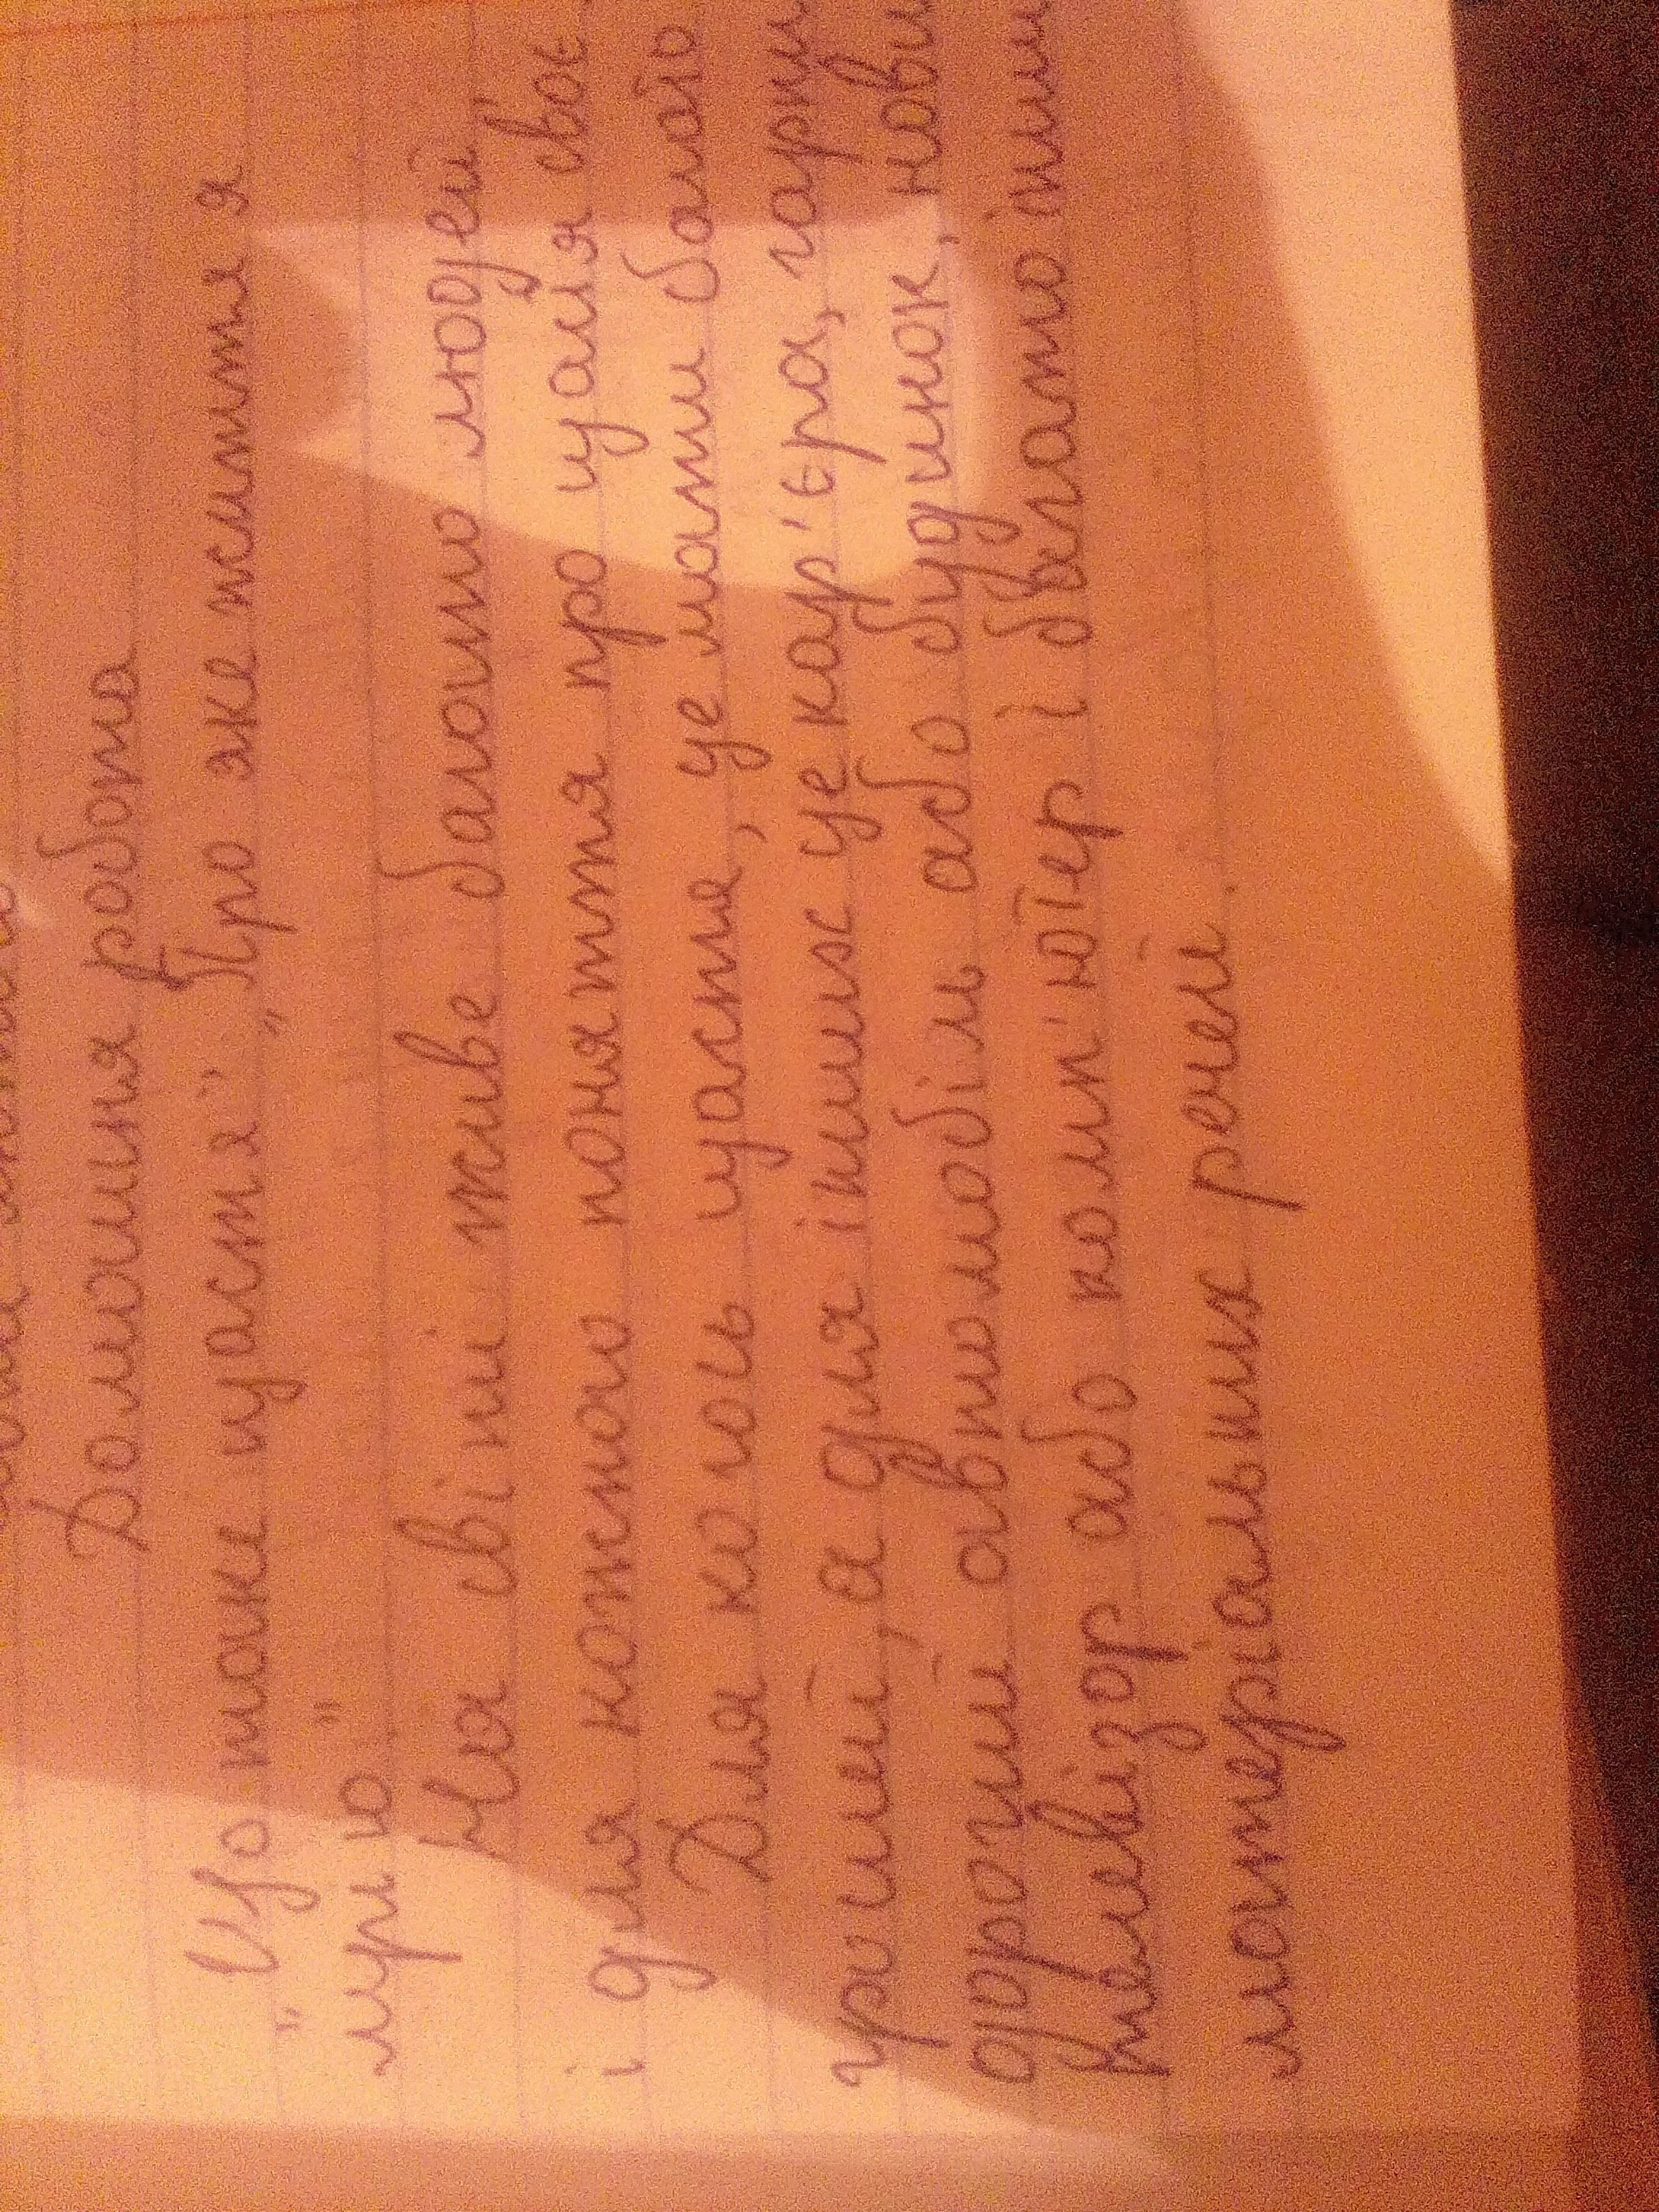 Домашня робота
"Що таке щастя" „Про яке життя я
мрію"
На світі живе багато людей
і для кожного поняття про щастя своє
Для когось щастя, це мати багато
грошей, а для інших це кар'єра, гарни
дорогий автомобіль або будинок, нови
телевізор або комп'ютер і багато інши
матеріальних речей.